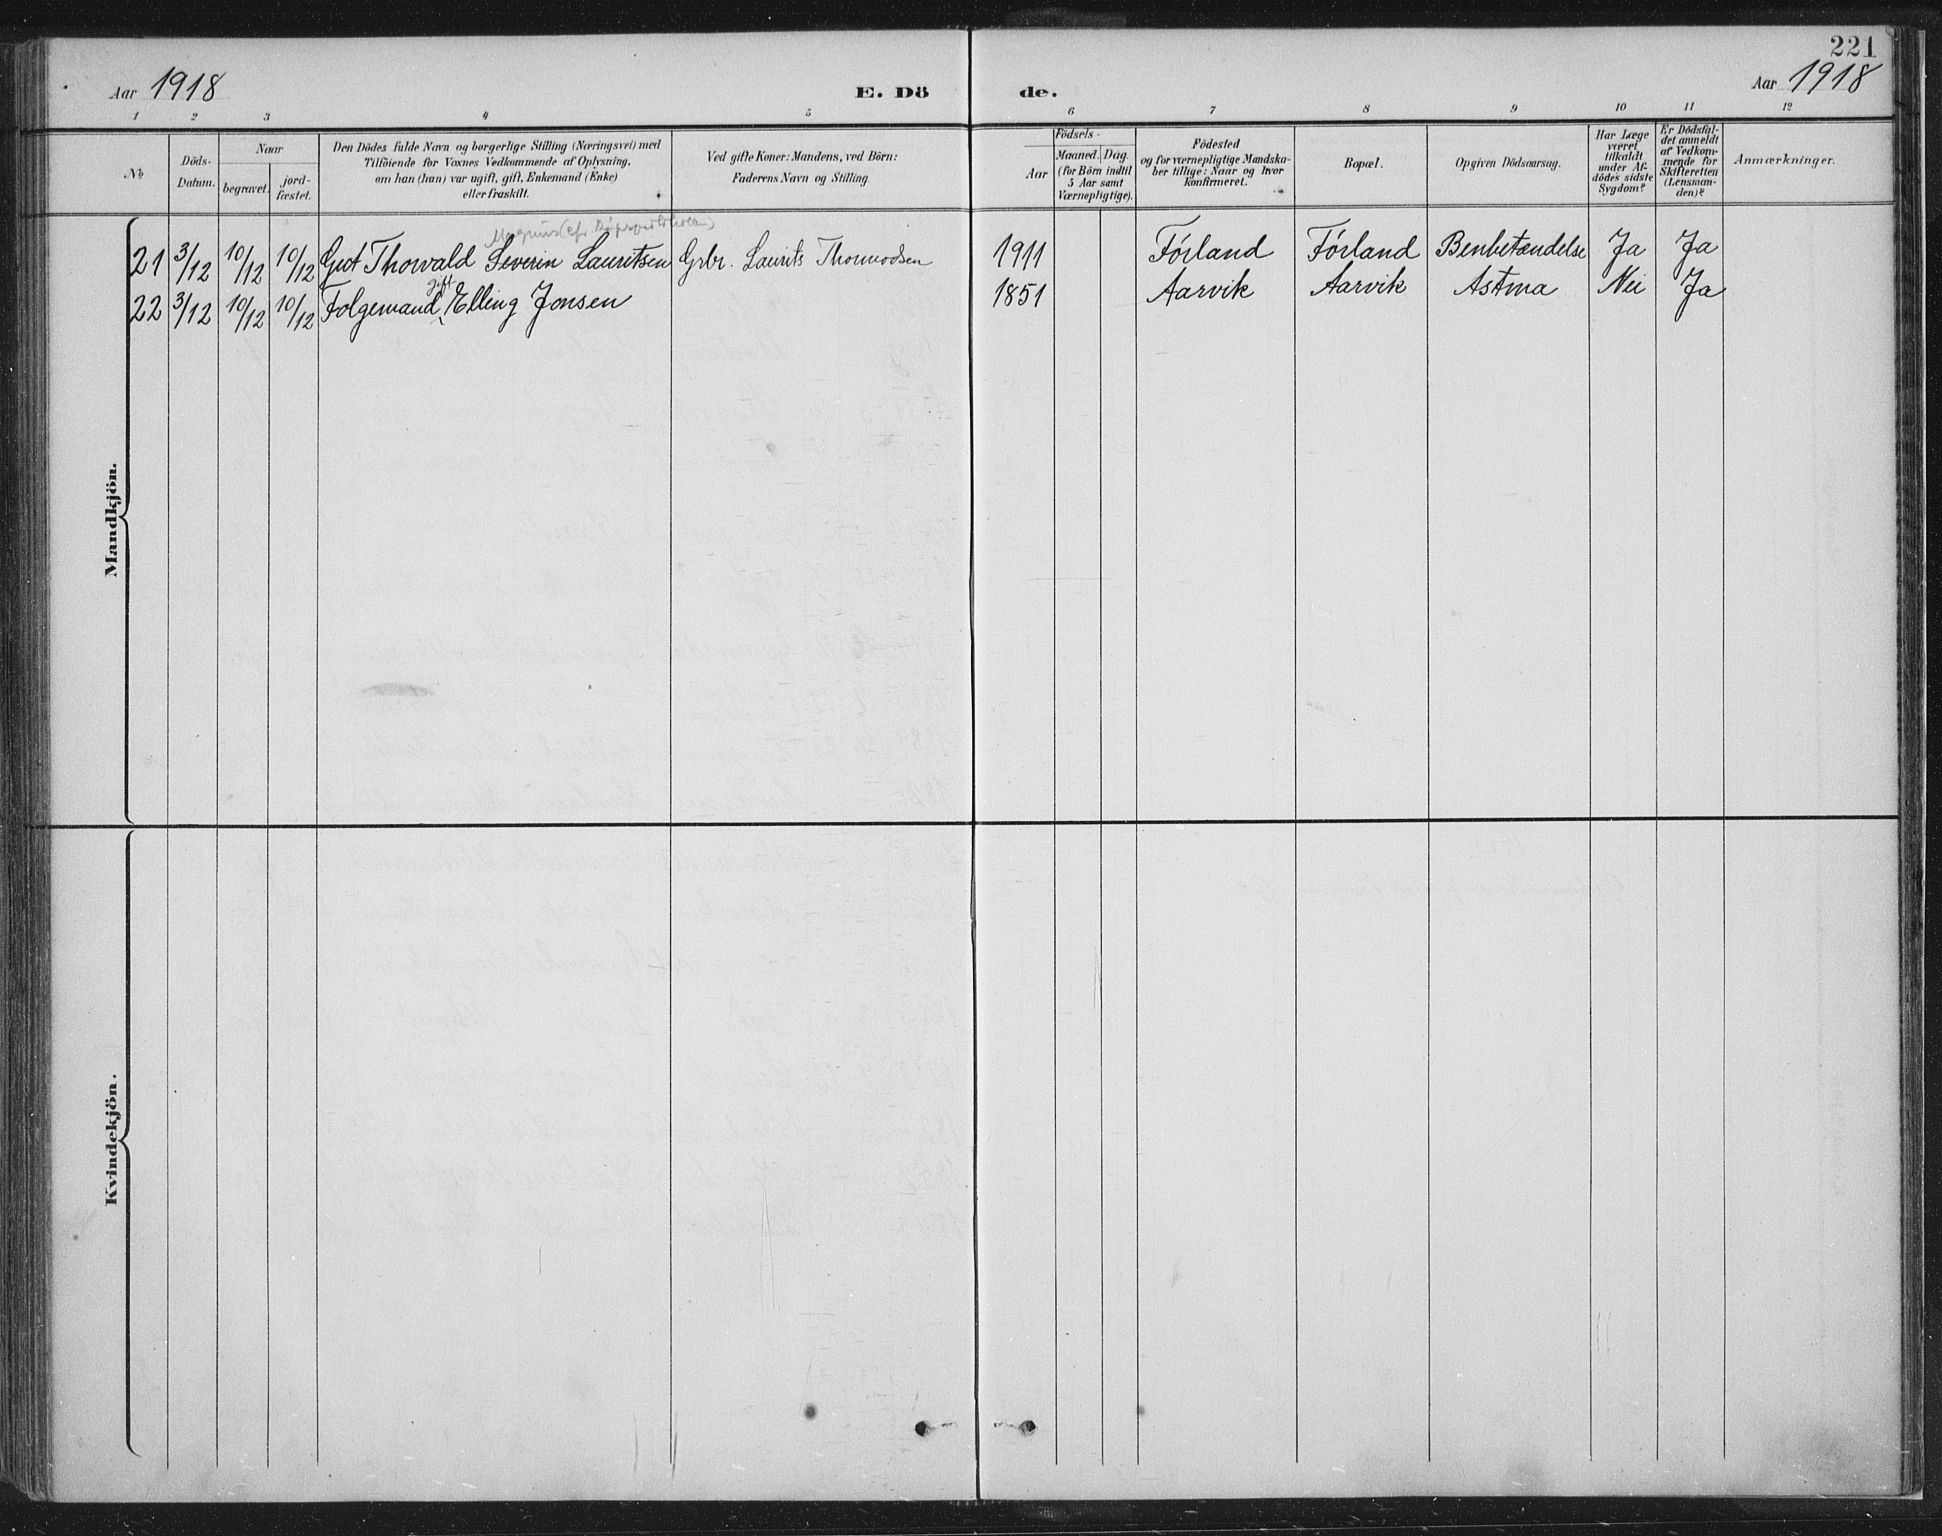 221
Aar 1918 E. Dö
de. Aar 1918
1 2 3 4 5 6 7 8 9 10 11 12
No
Döds-
Datum.
Naar
begravet.
jord-
fæstet.
Den Dödes fulde Navn og borgerlige Stilling (Næringsvei) med
Tilföiende for Voxnes Vedkommende af Oplysning,
om han (hun) var ugift, gift, Enkemand (Enke)
eller fraskilt.
Ved gifte Koner: Mandens, ved Börn:
Faderens Navn og Stilling.
Födsels-
Aar
Maaned. Dag.
(for Börn indtil
5 Aar samt
Værnepligtige).
Födested
og for værnepligtige Mandska-
ber tillige: Naar og hvor
konfirmeret.
Bopæl.
Opgiven Dödsaarsag.
Har Læge
været
tilkaldt
under Af-
dödes sidste
Sygdom?
Er Dödsfal-
det anmeldt
af Vedkom-
mende for
Skifteretten
(Lensman-
den)?
Anmærkninger.
Mandkjön.
Magnus (cfr. Dåpsprotokollen)
21 3/12 10/12 10/12 Gut Thorvald Severin Lauritsen Grbr. Laurits Thormodsen 1911 Førland Førland Benbetændelse Ja Ja
gift
22 3/12 10/12 10/12 Folgemand Elling Jonsen 1851 Aarvik Aarvik Astma Nei Ja
Kvindekjön.